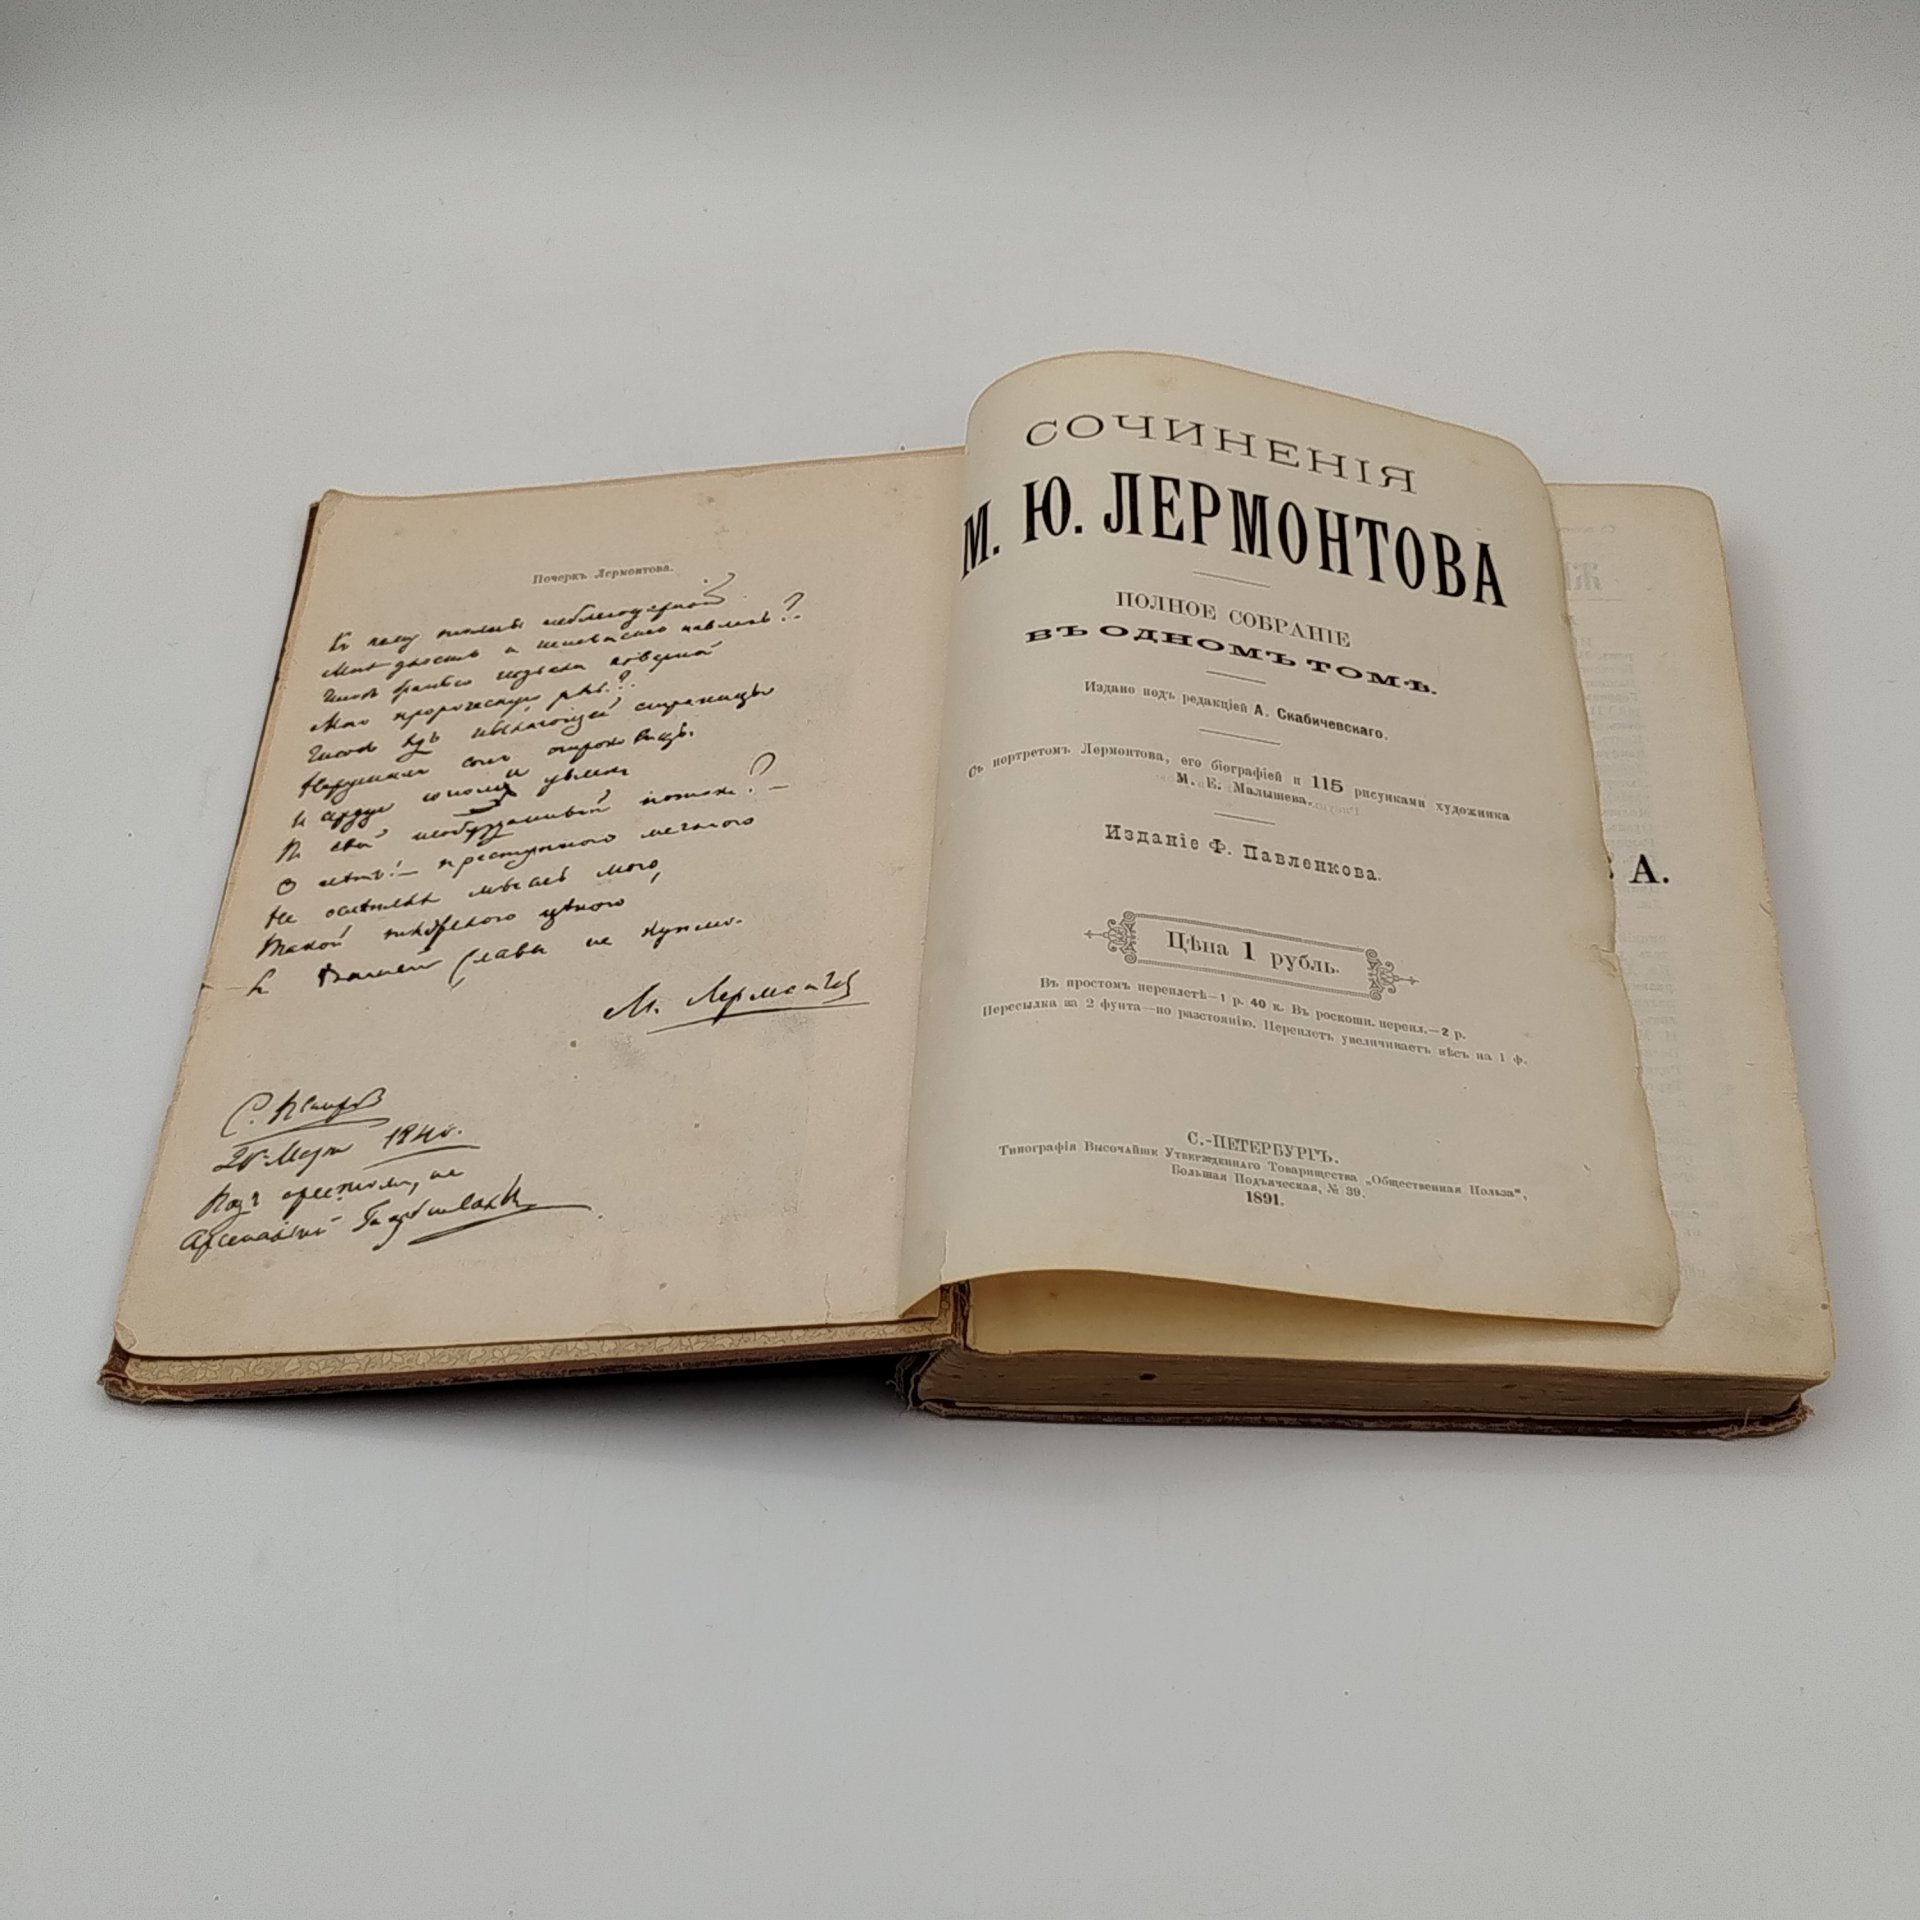 Почеркъ Лермонтова.
Къ чему толпы неблагодарной
Мнѣ злость и ненависть навлечь?
Чтобъ бранью назвали коварной
Мою пророческую рѣчь?
Чтобъ ядъ пылающей страницы
Нарушилъ сонъ отроковицъ.
И сердце
увлекъ
Въ свой необузданный потокъ? —
О нѣтъ! — преступною мечтою
Не ослѣпляя мысль мою,
Такой тяжелою цѣною
Я вашей славы не куплю.
М. Лермонтовъ
С. Петерб
20-е Марта 1840.
Подъ арестомъ, на
Арсенальной Гауптвахтѣ
СОЧИНЕНІЯ
М. Ю. ЛЕРМОНТОВА
ПОЛНОЕ СОБРАНІЕ
ВЪ ОДНОМЪ ТОМѢ.
Издано подъ редакціей А. Скабичевскаго.
Съ портретомъ Лермонтова, его біографіей и 115 рисунками художника
М. Е. Малышева.
Изданіе Ф. Павленкова.
Цѣна 1 рубль.
Въ простомъ переплетѣ—1 р. 40 к. Въ роскошн. перепл.—2 р.
Пересылка за 2 фунта—по разстоянію. Переплетъ увеличиваетъ вѣсъ на 1 ф.
С.-ПЕТЕРБУРГЪ.
Типографія Высочайше Утвержденнаго Товарищества „Общественная Польза“,
Большая Подъяческая, № 39.
1891.
А.